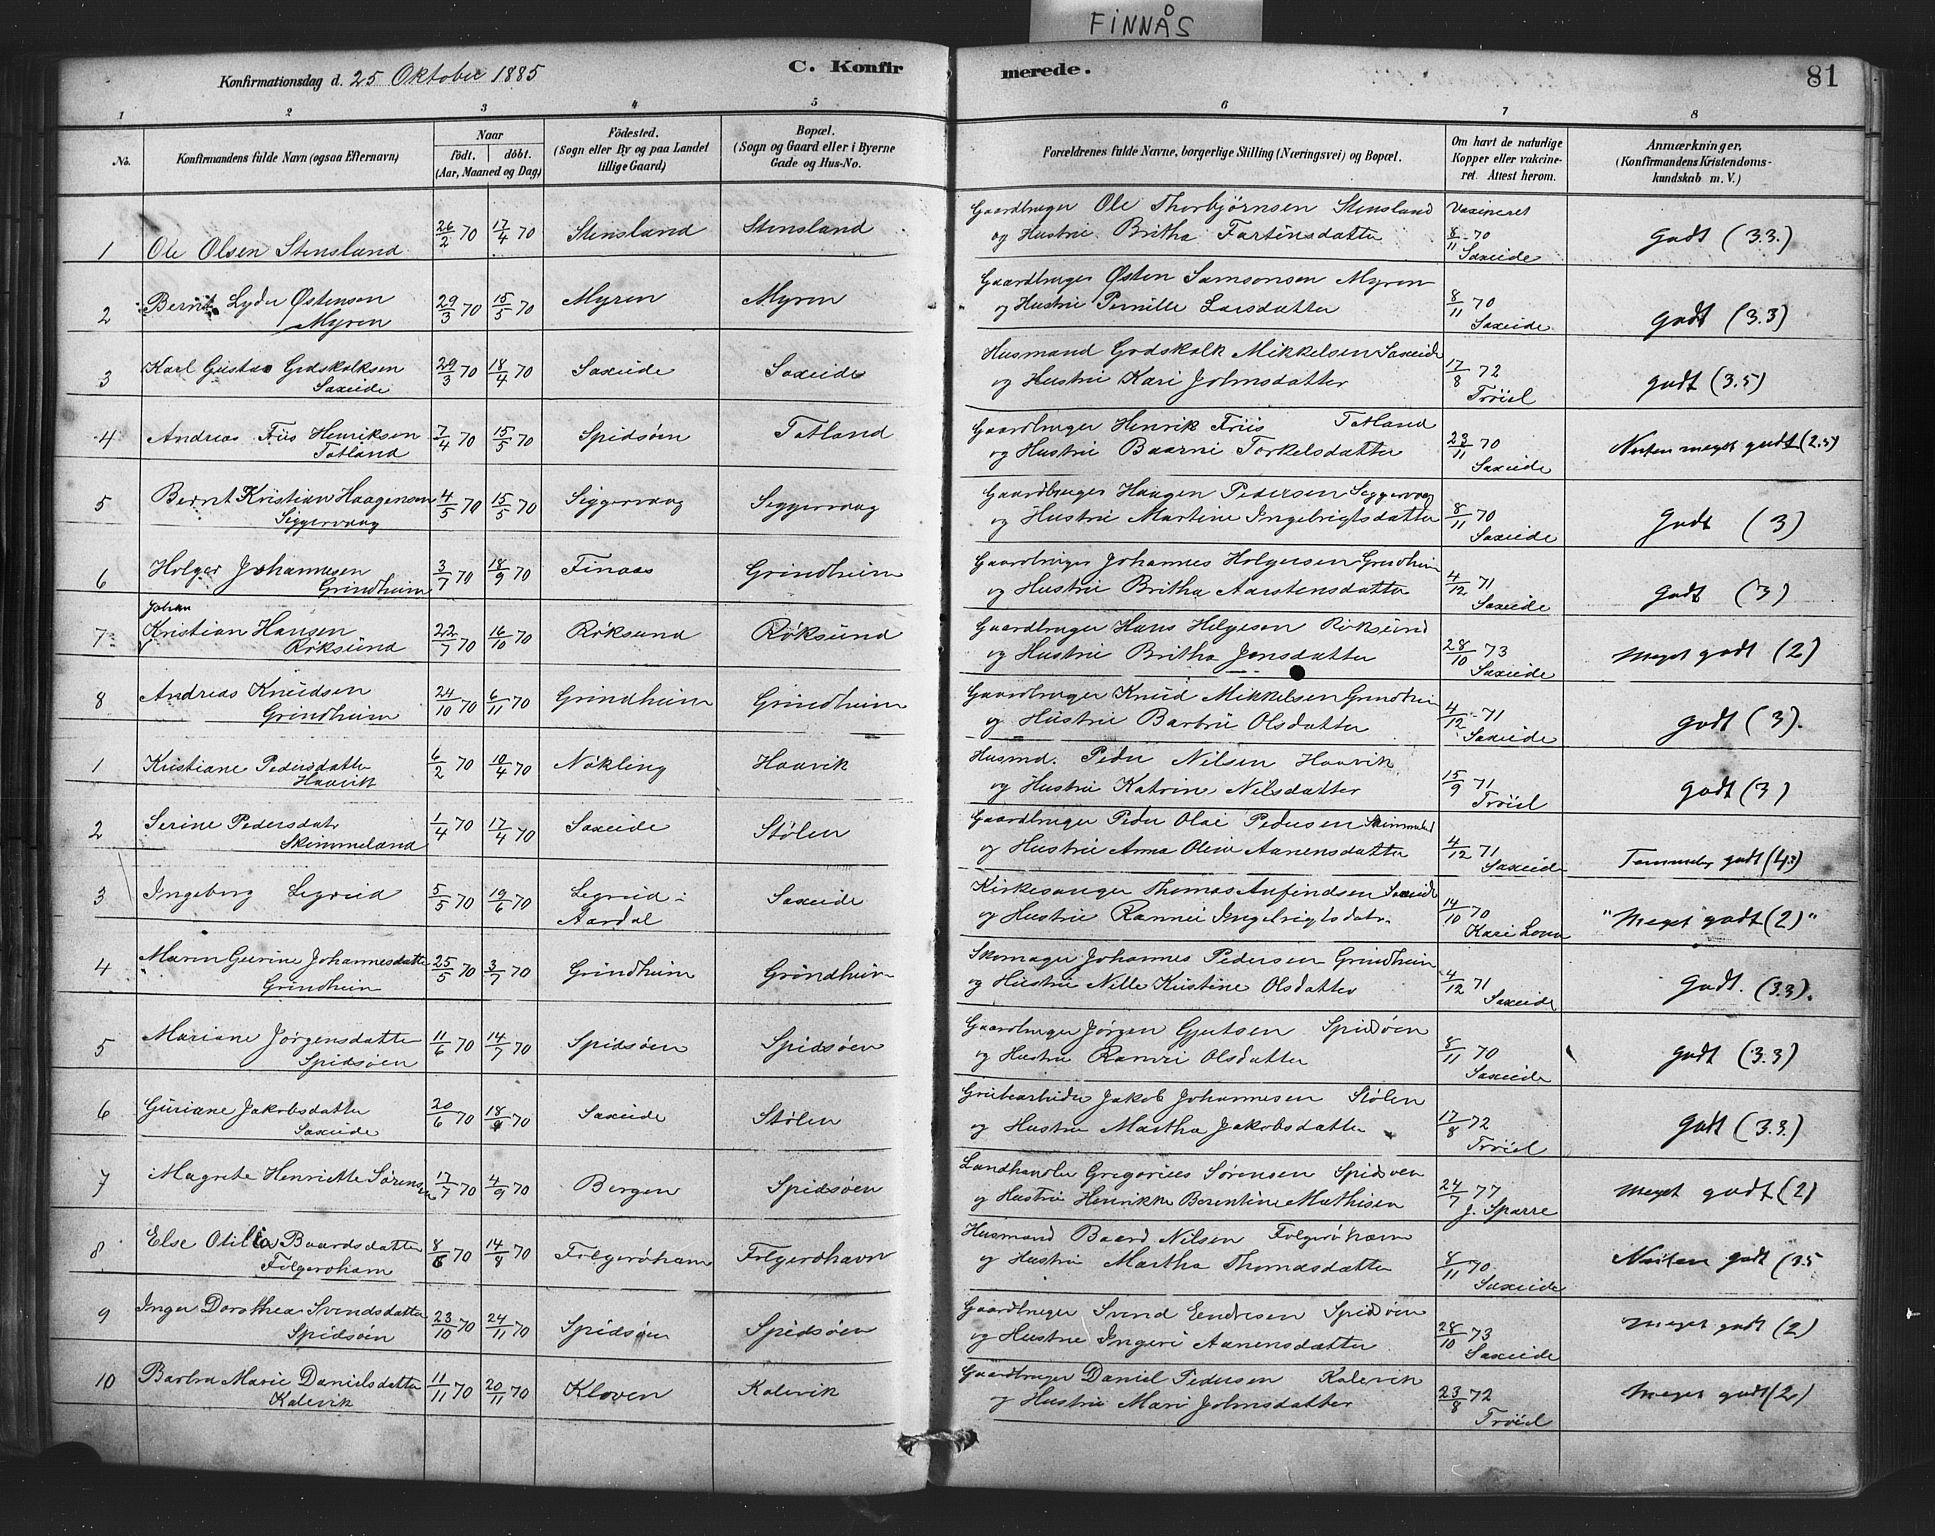 FINNÅS
Konfirmationsdag d. 25 Oktober 1885
C. Konfirmerede.
81
1 2 3 4 5 6 7 8
No.
Konfirmandens fulde Navn (ogsaa Efternavn)
Naar
født. døbt.
(Aar, Maaned og Dag)
Fødested.
(Sogn eller By og paa Landet
tillige Gaard)
Bopæl.
(Sogn og Gaard eller i Byerne
Gade og Hus-No.
Forældrenes fulde Navne, borgerlige Stilling (Næringsvei) og Bopæl.
Om havt de naturlige
Kopper eller vakcine-
ret. Attest herom.
Anmærkninger,
(Konfirmandens Kristendoms-
kundskab m. V.)
1 Ole Olsen Stensland 26/2 70 17/4 70 Stensland Stensland
Gaardbruger Ole Thorbjørnsen Stensland
og Hustru Britha Fartinsdatter
Vaxineret
8/11 70
Saxeide
Godt (3.3.)
2 Bernt Lyder Østensen
Myren
29/3 70 15/5 70 Myren Myren
Gaardbruger Østen Samsonsen Myren
og Hustru Pernille Larsdatter
8/11 70
Saxeide
godt (3.3)
3 Karl Gustav Godskalksen
Saxeide
29/3 70 18/4 70 Saxeide Saxeide
Husmand Godskalk Mikkelsen Saxeide
og Hustru Kari Johnsdatter
17/8 72
Trøiel
godt (3.5)
4 Andreas Friis Henriksen
Totland
7/4 70 15/5 70 Spidsøen Totland
Gaardbruger Henrik Friis Totland
og Hustru Baarni Torkelsdatter
23/11 70
Saxeide
Næsten meget godt (2.5)
5 Bernt Kristian Haagensen
Siggervaag
4/5 70 15/5 70 Siggervaag Seggervaag
Gaardbruger Haagen Pedersen Seggervaag
og Hustru Martine Ingebrigtsdatter
8/11 70
Saxeide
Godt (3)
6 Holger Johannesen
Grindheim
3/7 70 18/9 70 Finaas Grindheim
Gaardbruger Johannes Holgersen Grindheim
og Hustru Britha Aarstensdatter
4/12 71
Saxeide
godt (3)
7 Johan
Kristian Hansen
Røksund
22/7 70 16/10 70 Røksund Røksund
Gaardbruger Hans Helgesen Røksund
og Hustru Britha Jonsdatter
28/10 73
Saxeide
meget godt (2)
8 Andreas Knudsen
Grindheim
24/10 70 6/11 70 Grindheim Grindheim
Gaardbruger Knud Mikkelsen Grindheim
og Hustru Barbru Olsdatter
4/12 71
Saxeide
godt (3).
1 Kristiane Pedersdatter
Haavik
6/2 70 10/4 70 Nøkling Haavik
Husmd. Peder Nilsen Haavik
og Hustru Katrine Nilsdatter
15/9 71
Trøiel
godt (3)
2 Serine Pedersdatr
Skimmeland
1/4 70 17/4 70 Saxeide Stølen
Gaardbruger Peder Olai Pedersen Skimmeland
og Hustru Anna Oline Aanensdatter
4/12 71
Saxeide
Temmelig godt
3 Ingeborg Legreid 5/5 70 19/6 70 Legreid i
Aardal
Saxeide
Kirkesanger Thomas Anfindsen Saxeide
og Hustru Rannei Ingebrigtsdatr.
14/10 70
Kari Lona
"Meget godt (2)"
4 Marin Gurine Johannesdatter
Grindheim
25/5 70 3/7 70 Grindheim Grindheim
Skomager Johannes Pedersen Grindheim
og Hustru Nille Kristine Olsdatter
4/12 71
Saxeide
godt. (3.3).
5 Mariane Jørgensdatter
Spidsøen
11/6 70 14/7 70 Spidsøen Spidsøen
Gaardbruger Jørgen Gjertsen Spidsøen
og Hustru Ranvei Olsdatter
8/11 70
Saxeide
godt (3.3)
6 Guriane Jakobsdatter
Saxeide
20/6 70 18/9 70 Saxeide Stølen
Grubearbeider Jakob Johannesen Stølen
og Hustru Martha Jakobsdatter
17/8 72
Trøiel
godt (3.3.)
7 Magrete Henriette Sørensen
17/7 70 4/9 70 Bergen Spidsøen
Landhandler Gregorius Sørensen Spidsøen
og Hustru Henrikke Berentine Mathisen
24/7 77
J. Sparre
meget godt (2)
8 Else Otillia Baardsdatter
Folgerøham
8/6 70 14/8 70 Folgerøham Folgerøhavn
Husmand Baard Nilsen Folgerøhavn
og Hustru Martha Thomasdatter
8/11 70
Saxeide
Næsten godt (3.5
9 Inger Dorothea Svendsdatter
Spidsøin
23/10 70 24/11 70 Spidsøen Spidsøen
Gaardbruger Svend Endresen Spidsøen
og Hustru Ingeri Aanensdatter
28/10 73
Saxeide
meget godt (2)
10 Barbra Marie Danielsdatter
Kalevik
11/11 70 20/11 70 Kloven Kalevik
Gaardbruger Daniel Pedersen Kalevik
og Hustru Mari Johnsdatter
23/8 72
Trøiel
meget godt (2)